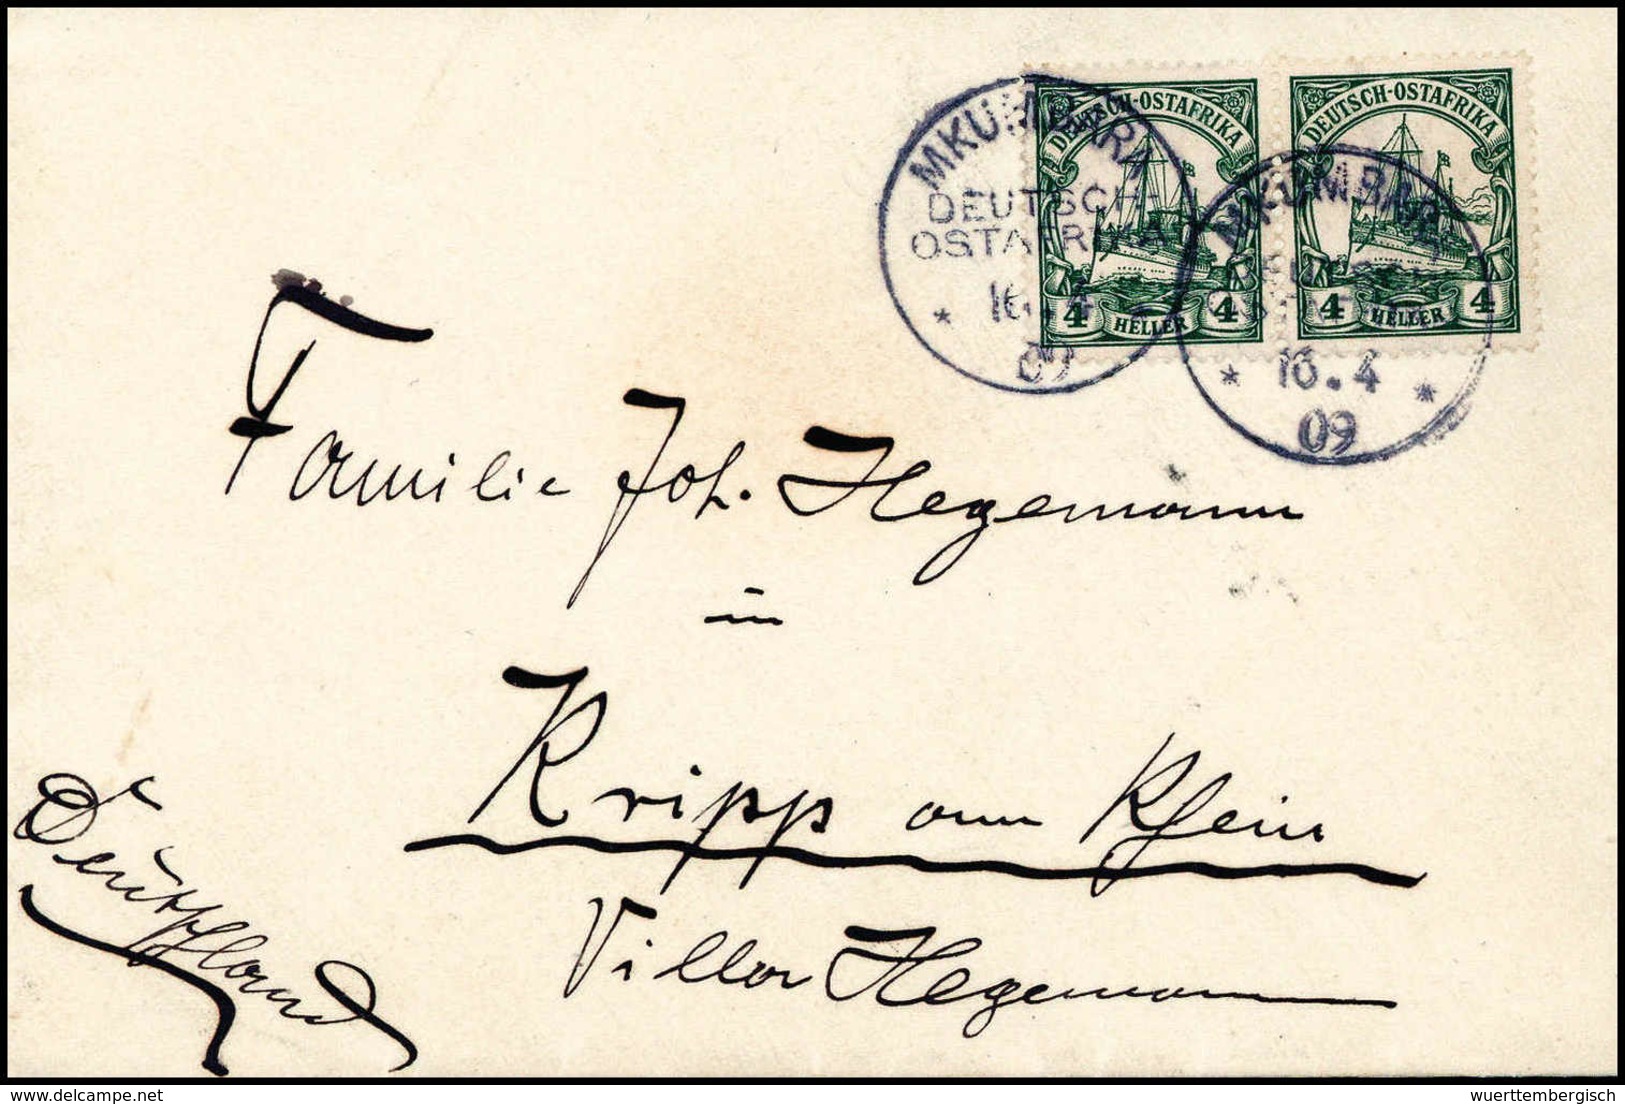 DEUTSCH-OSTAFRIKA
4 HELLER 4
DEUTSCH-OSTAFRIKA
4 HELLER 4
MKUMBARA
DEUTSCH-
OSTAFRIKA
* 16.4
09
MKUMBARA
* 16.4 *
09
Familie Joh. Hegemann
in
Kripp am Rhein
Villa Hegemann
Deutschland
© the-saleroom.com
wuerttembergisch